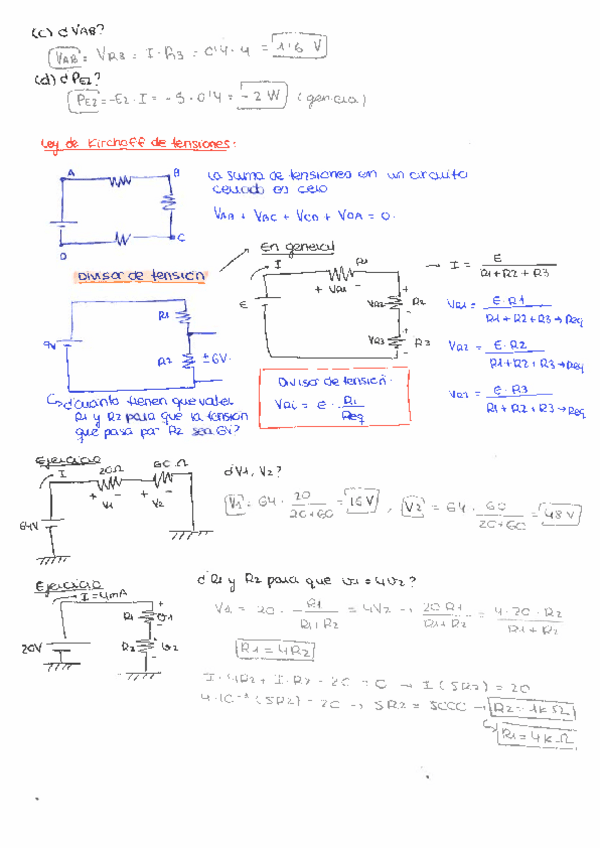 (c) ¿VAB?
VAB = VR3 = I · R3 = 0'4 · 4 = 1'6 V
(d) ¿PE2?
PE2 = -E2 · I = -5 · 0'4 = -2 W (genera)
Ley de Kirchoff de tensiones:
A
B
C
D
La suma de tensiones en un circuito
cerrado es cero
VAB + VBC + VCD + VDA = 0.
Divisor de tensión
En general
I
E
R1
+ VR1 -
+
VR2
-
R2
+
VR3
-
R3
→ I = E / R1 + R2 + R3
VR1 = E · R1 / R1 + R2 + R3 → Req
VR2 = E · R2 / R1 + R2 + R3 → Req
VR3 = E · R3 / R1 + R2 + R3 → Req
9V
R1
R2
± 6V
¿cuanto tienen que valer
R1 y R2 para que la tensión
que pasa por R2 sea 6V?
Divisor de tensión.
VRi = E · Ri / Req
Ejercicio
I
20Ω
60Ω
+ V1 -
+ V2 -
64V
¿V1, V2?
V1 = 64 · 20 / 20+60 = 16 V , V2 = 64 · 60 / 20+60 = 48 V
Ejercicio
I = 4mA
20V
R1
+
V1
-
R2
+
V2
-
¿R1 y R2 para que V1 = 4V2?
V1 = 20 · R1 / R1+R2 = 4V2 → 20 R1 / R1+R2 = 4·20·R2 / R1+R2
R1 = 4R2
I · 4R2 + I · R2 - 20 = 0 → I (5R2) = 20
4·10⁻³ (5R2) = 20 → 5R2 = 5000 → R2 = 1kΩ
R1 = 4kΩ